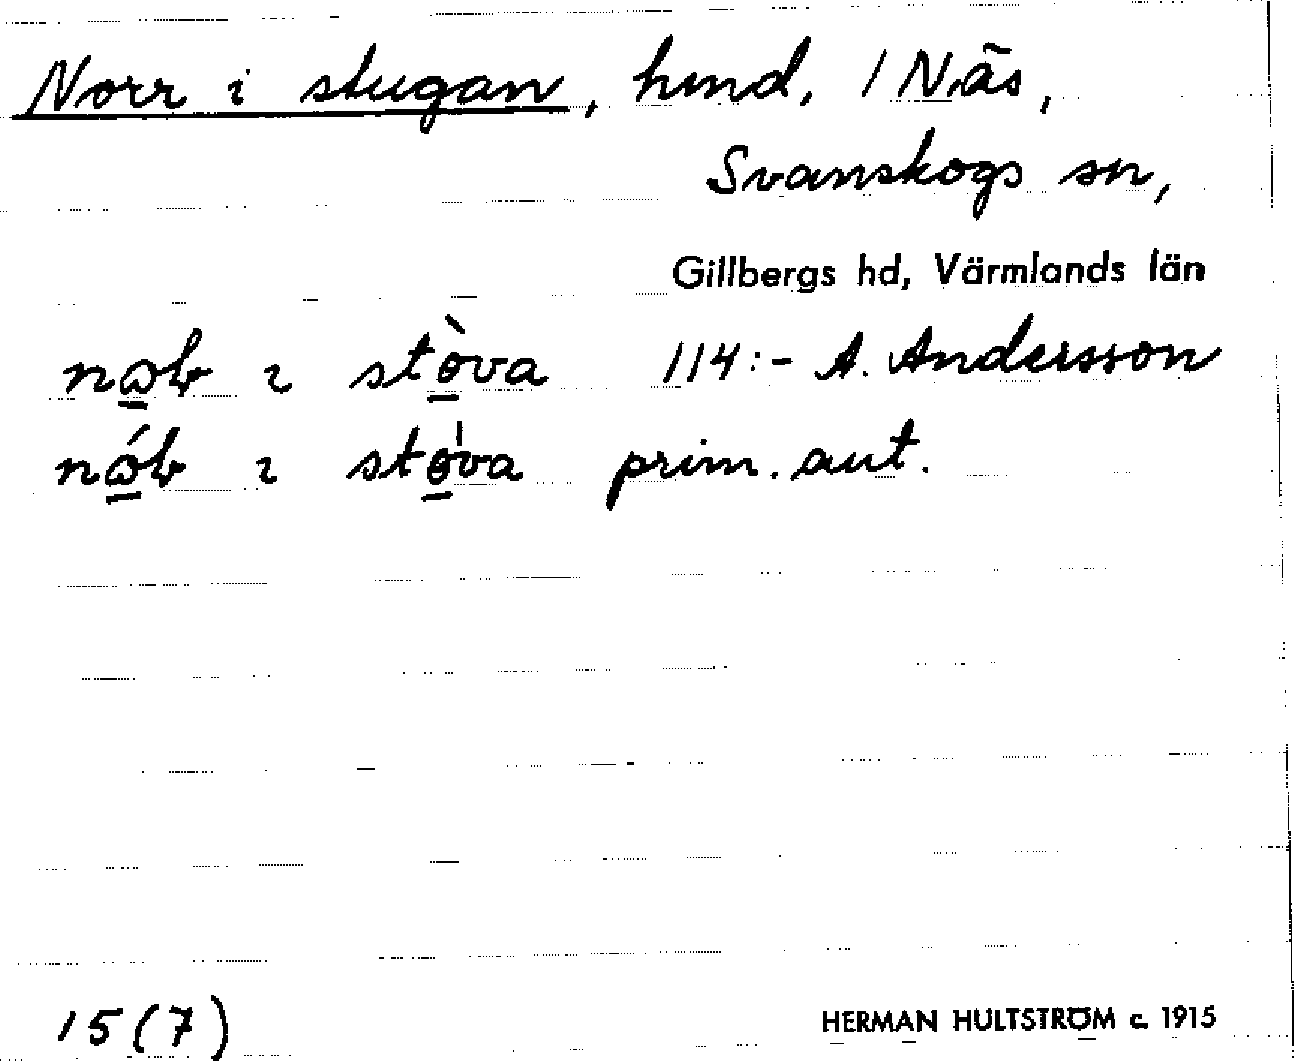 Norr i stugan, hmd, 1 Näs,
Svanskogs sn,
Gillbergs hd, Värmlands län
i stòva 114:- A. Andersson
i prim. aut.
15(7) HERMAN HULTSTRÖM c. 1915